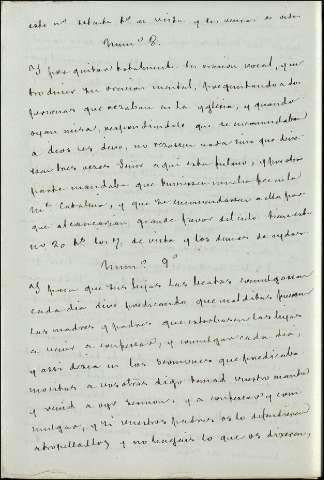 este nº setenta tº. de vista y los demas de oidas
Numº 8.
Y por quitar totalmente la oracion vocal, que
troducer su oracion mental, preguntandole dos
personas que rezaban en la yglesia, y quando
oyan misa, respondiendole que se encomendaban
a dios les decia, no rezasen nada sino que dixe-
sen tres veces Señor aqui esta fulano, y por otra
parte mandaba que tuviesen mucha fee en la
Me Catalina, y que se encomendasen a ella por-
que alcanzarian grande favor del cielo tiene este
nº 20 tº. los 17, de vista y los demas de oydas.
Numº 9º
Y para que sus hijas las beatas comulgasen
cada dia dice predicando que maldeban fuesen
las madres y padres que estorbasen las hijas
a venir a confesar, y comulgar cada dia,
y assi decia en los sermones que predicaba
mochas a vosotras digo tomad vuestro manto
y venid a oyr sermon, y a confesar y com-
mulgar, y si vuestros padres os lo defendieren
atropelladlos y no hagais lo que os dixeren,